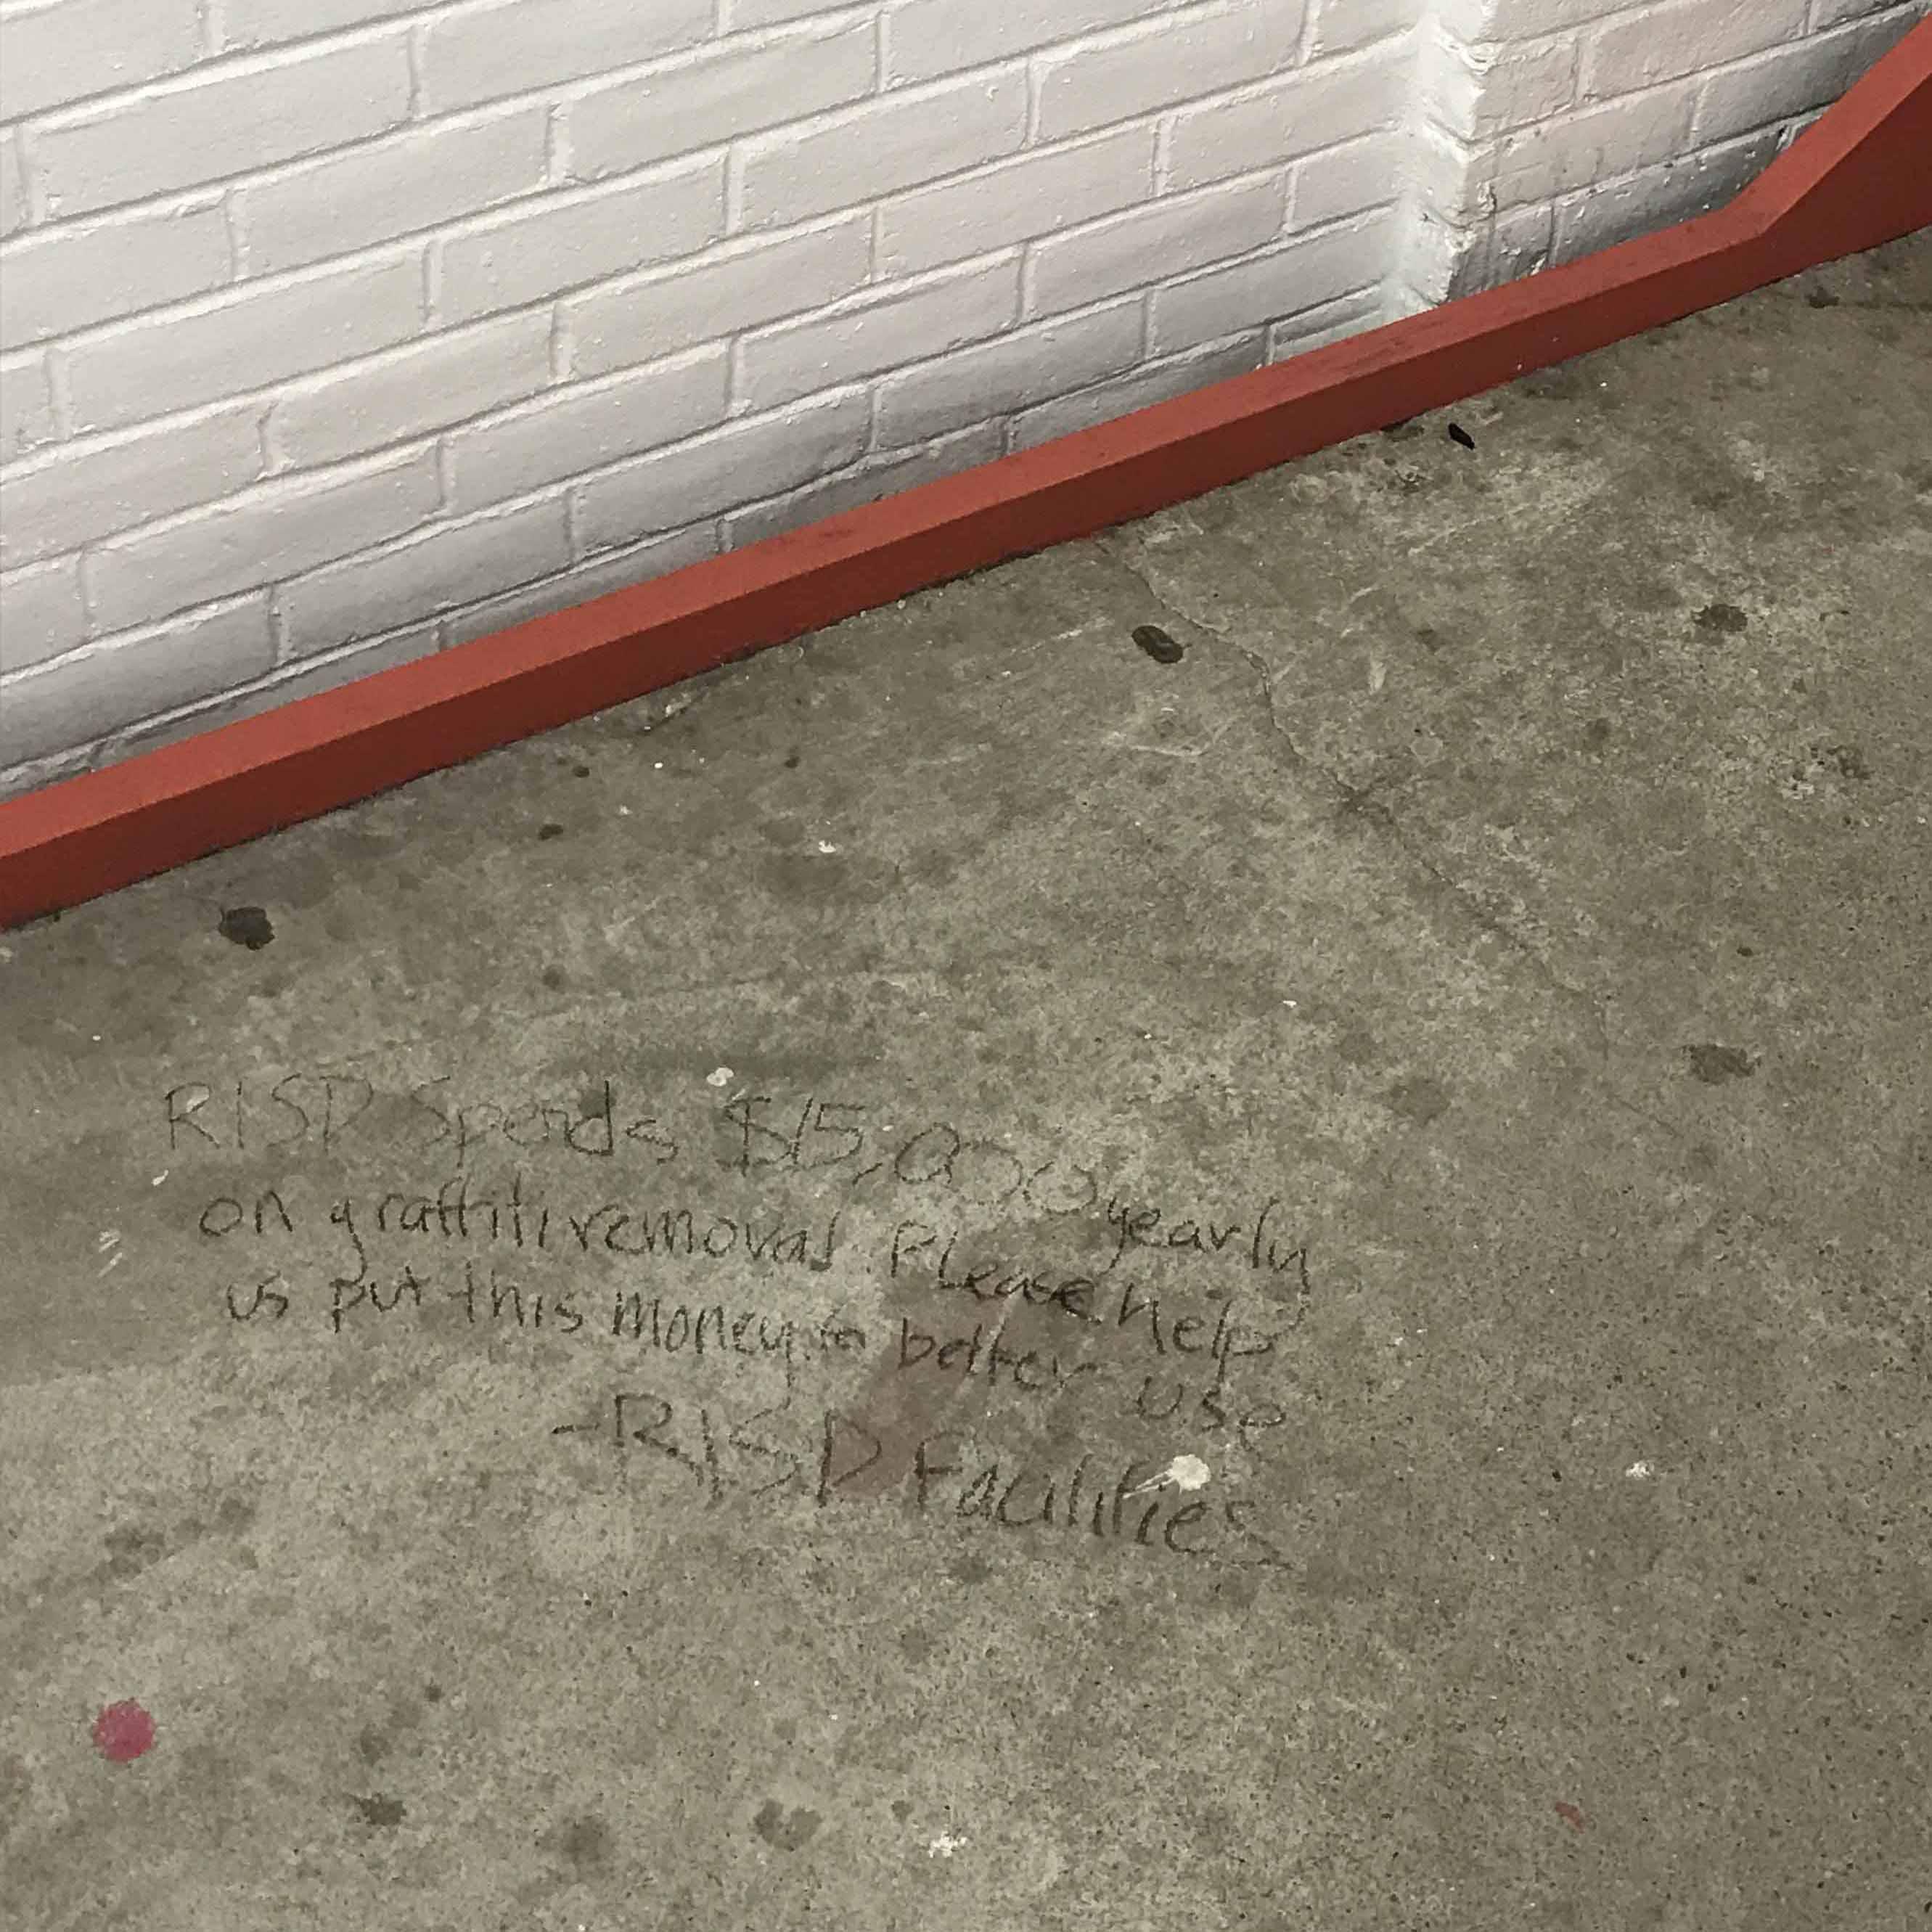 RISD Spends $15,000 yearly
on graffiti removal. Please help
us put this money to better use
-RISD Facilities